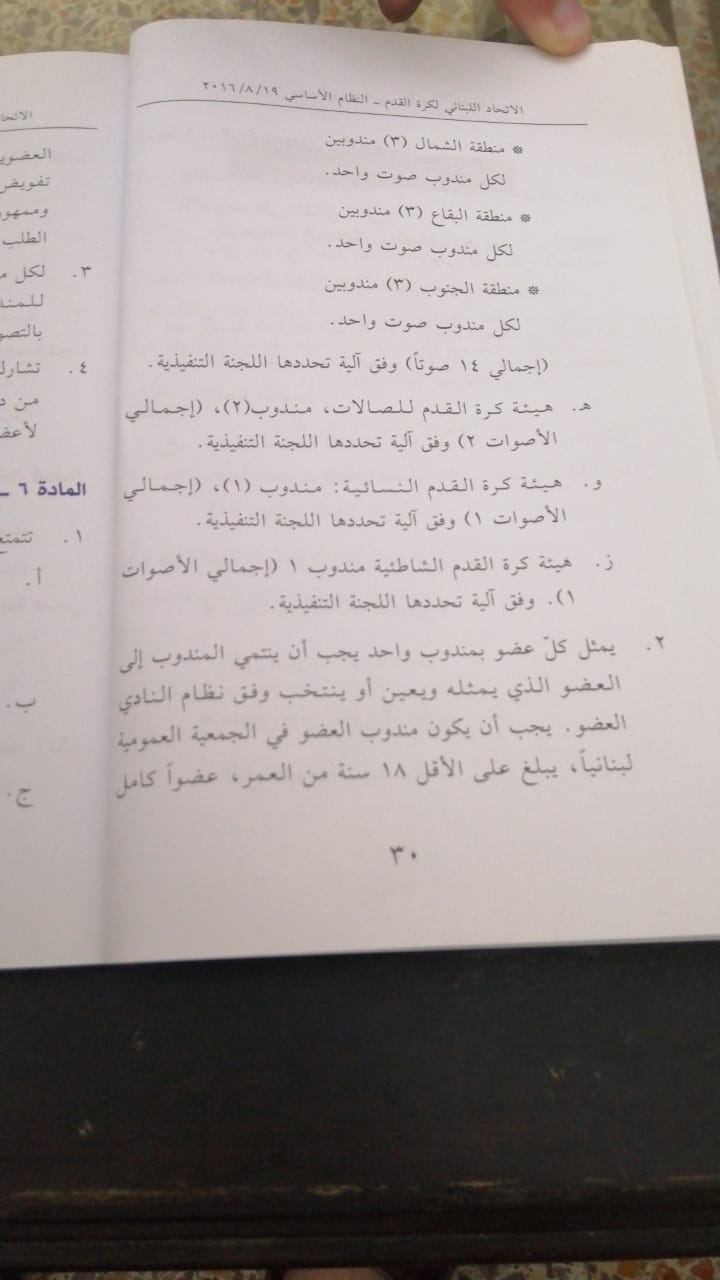 الاتحاد اللبناني لكرة القدم – النظام الأساسي ٢٠١٦/٨/١٩
* منطقة الشمال (٣) مندوبين
لكل مندوب صوت واحد.
* منطقة البقاع (٣) مندوبين
لكل مندوب صوت واحد.
* منطقة الجنوب (٣) مندوبين
لكل مندوب صوت واحد.
(إجمالي ١٤ صوتاً) وفق آلية تحددها اللجنة التنفيذية.
هـ. هيئة كرة القدم للصالات، مندوب(٢)، (إجمالي
الأصوات ٢) وفق آلية تحددها اللجنة التنفيذية.
و. هيئة كرة القدم النسائية: مندوب (١)، (إجمالي
الأصوات ١) وفق آلية تحددها اللجنة التنفيذية.
ز. هيئة كرة القدم الشاطئية مندوب ١ (إجمالي الأصوات
١). وفق آلية تحددها اللجنة التنفيذية.
٢. يمثل كلّ عضو بمندوب واحد يجب أن ينتمي المندوب إلى
العضو الذي يمثله ويعين أو ينتخب وفق نظام النادي
العضو. يجب أن يكون مندوب العضو في الجمعية العمومية
لبنانياً، يبلغ على الأقل ١٨ سنة من العمر، عضواً كامل
٣٠
تفويض
الطلب
٣. لكل
٤.
من
المادة ٦ –
١.
أ.
ب.
ج.